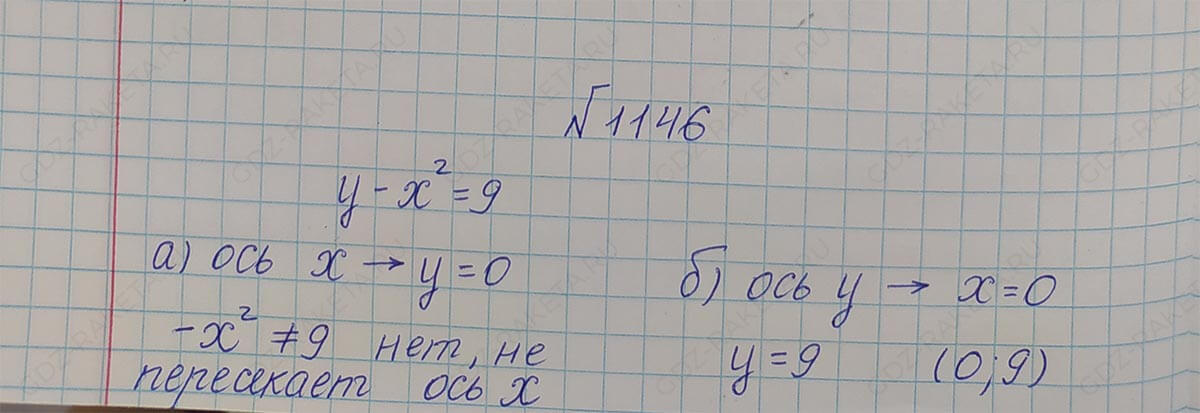 №1146
y - x² = 9
а) ось x → y = 0
-x² ≠ 9 нет, не
пересекает ось x
б) ось y → x = 0
y = 9 (0; 9)